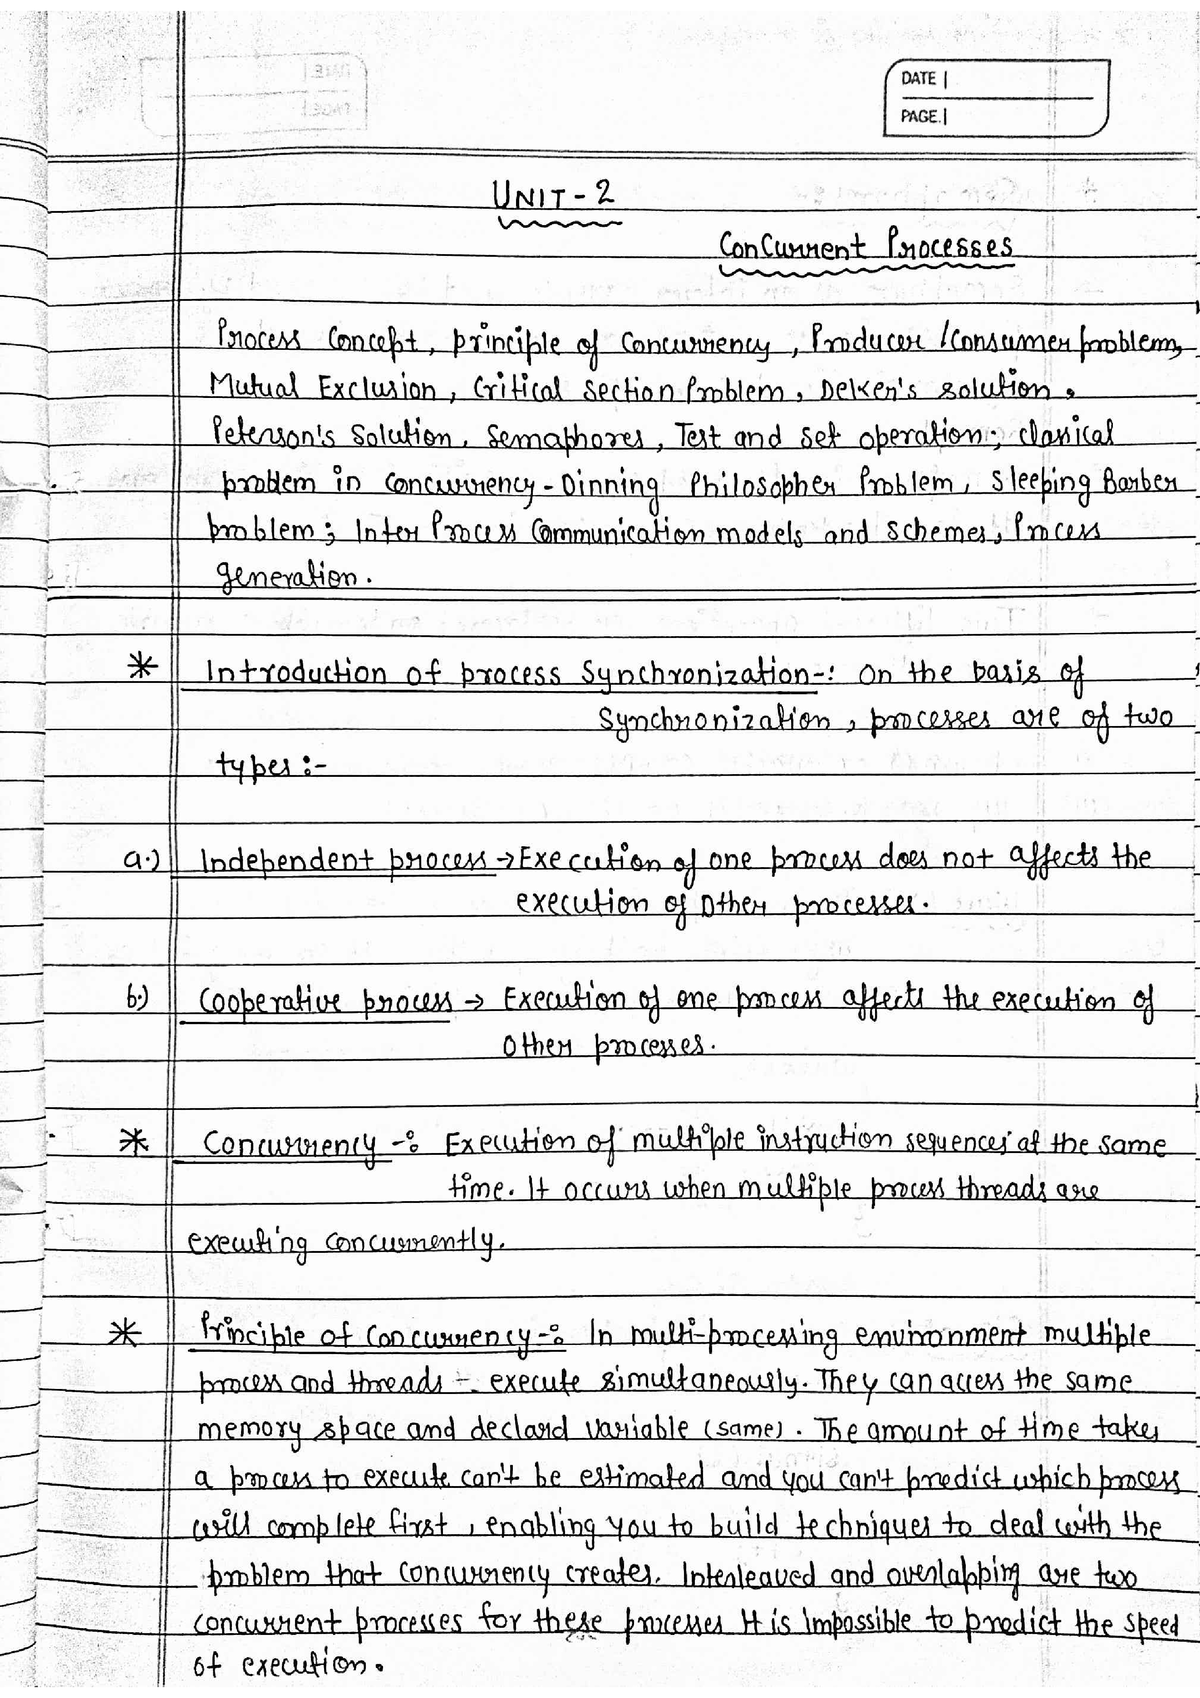 DATE |
PAGE. |
UNIT - 2
Concurrent Processes
Process Concept, principle of Concurrency, Producer / Consumer problem,
Mutual Exclusion, Critical Section Problem, Delker's solution.
Peterson's Solution, Semaphores, Test and set operation; clasical
problem in concurrency - Dinning Philosopher Problem, Sleeping Barber
problem; Inter Process Communication models and schemes, Process
generation.
* Introduction of process Synchronization-: On the basis of
Synchronization, processes are of two
types :-
a.) Independent process → Execution of one process does not affects the
execution of other processes.
b.) Cooperative process → Execution of one process affects the execution of
other processes.
* Concurrency -: Execution of multiple instruction sequences at the same
time. It occurs when multiple process threads are
executing concurrently.
* Principle of Concurrency -: In multi-processing environment multiple
process and threads - execute simultaneously. They can access the same
memory space and declard variable (same). The amount of time takes
a process to execute can't be estimated and you can't predict which process
will complete first, enabling you to build techniques to deal with the
problem that concurrency creates. Interleaved and overlapping are two
concurrent processes for these processes It is impossible to predict the speed
of execution.